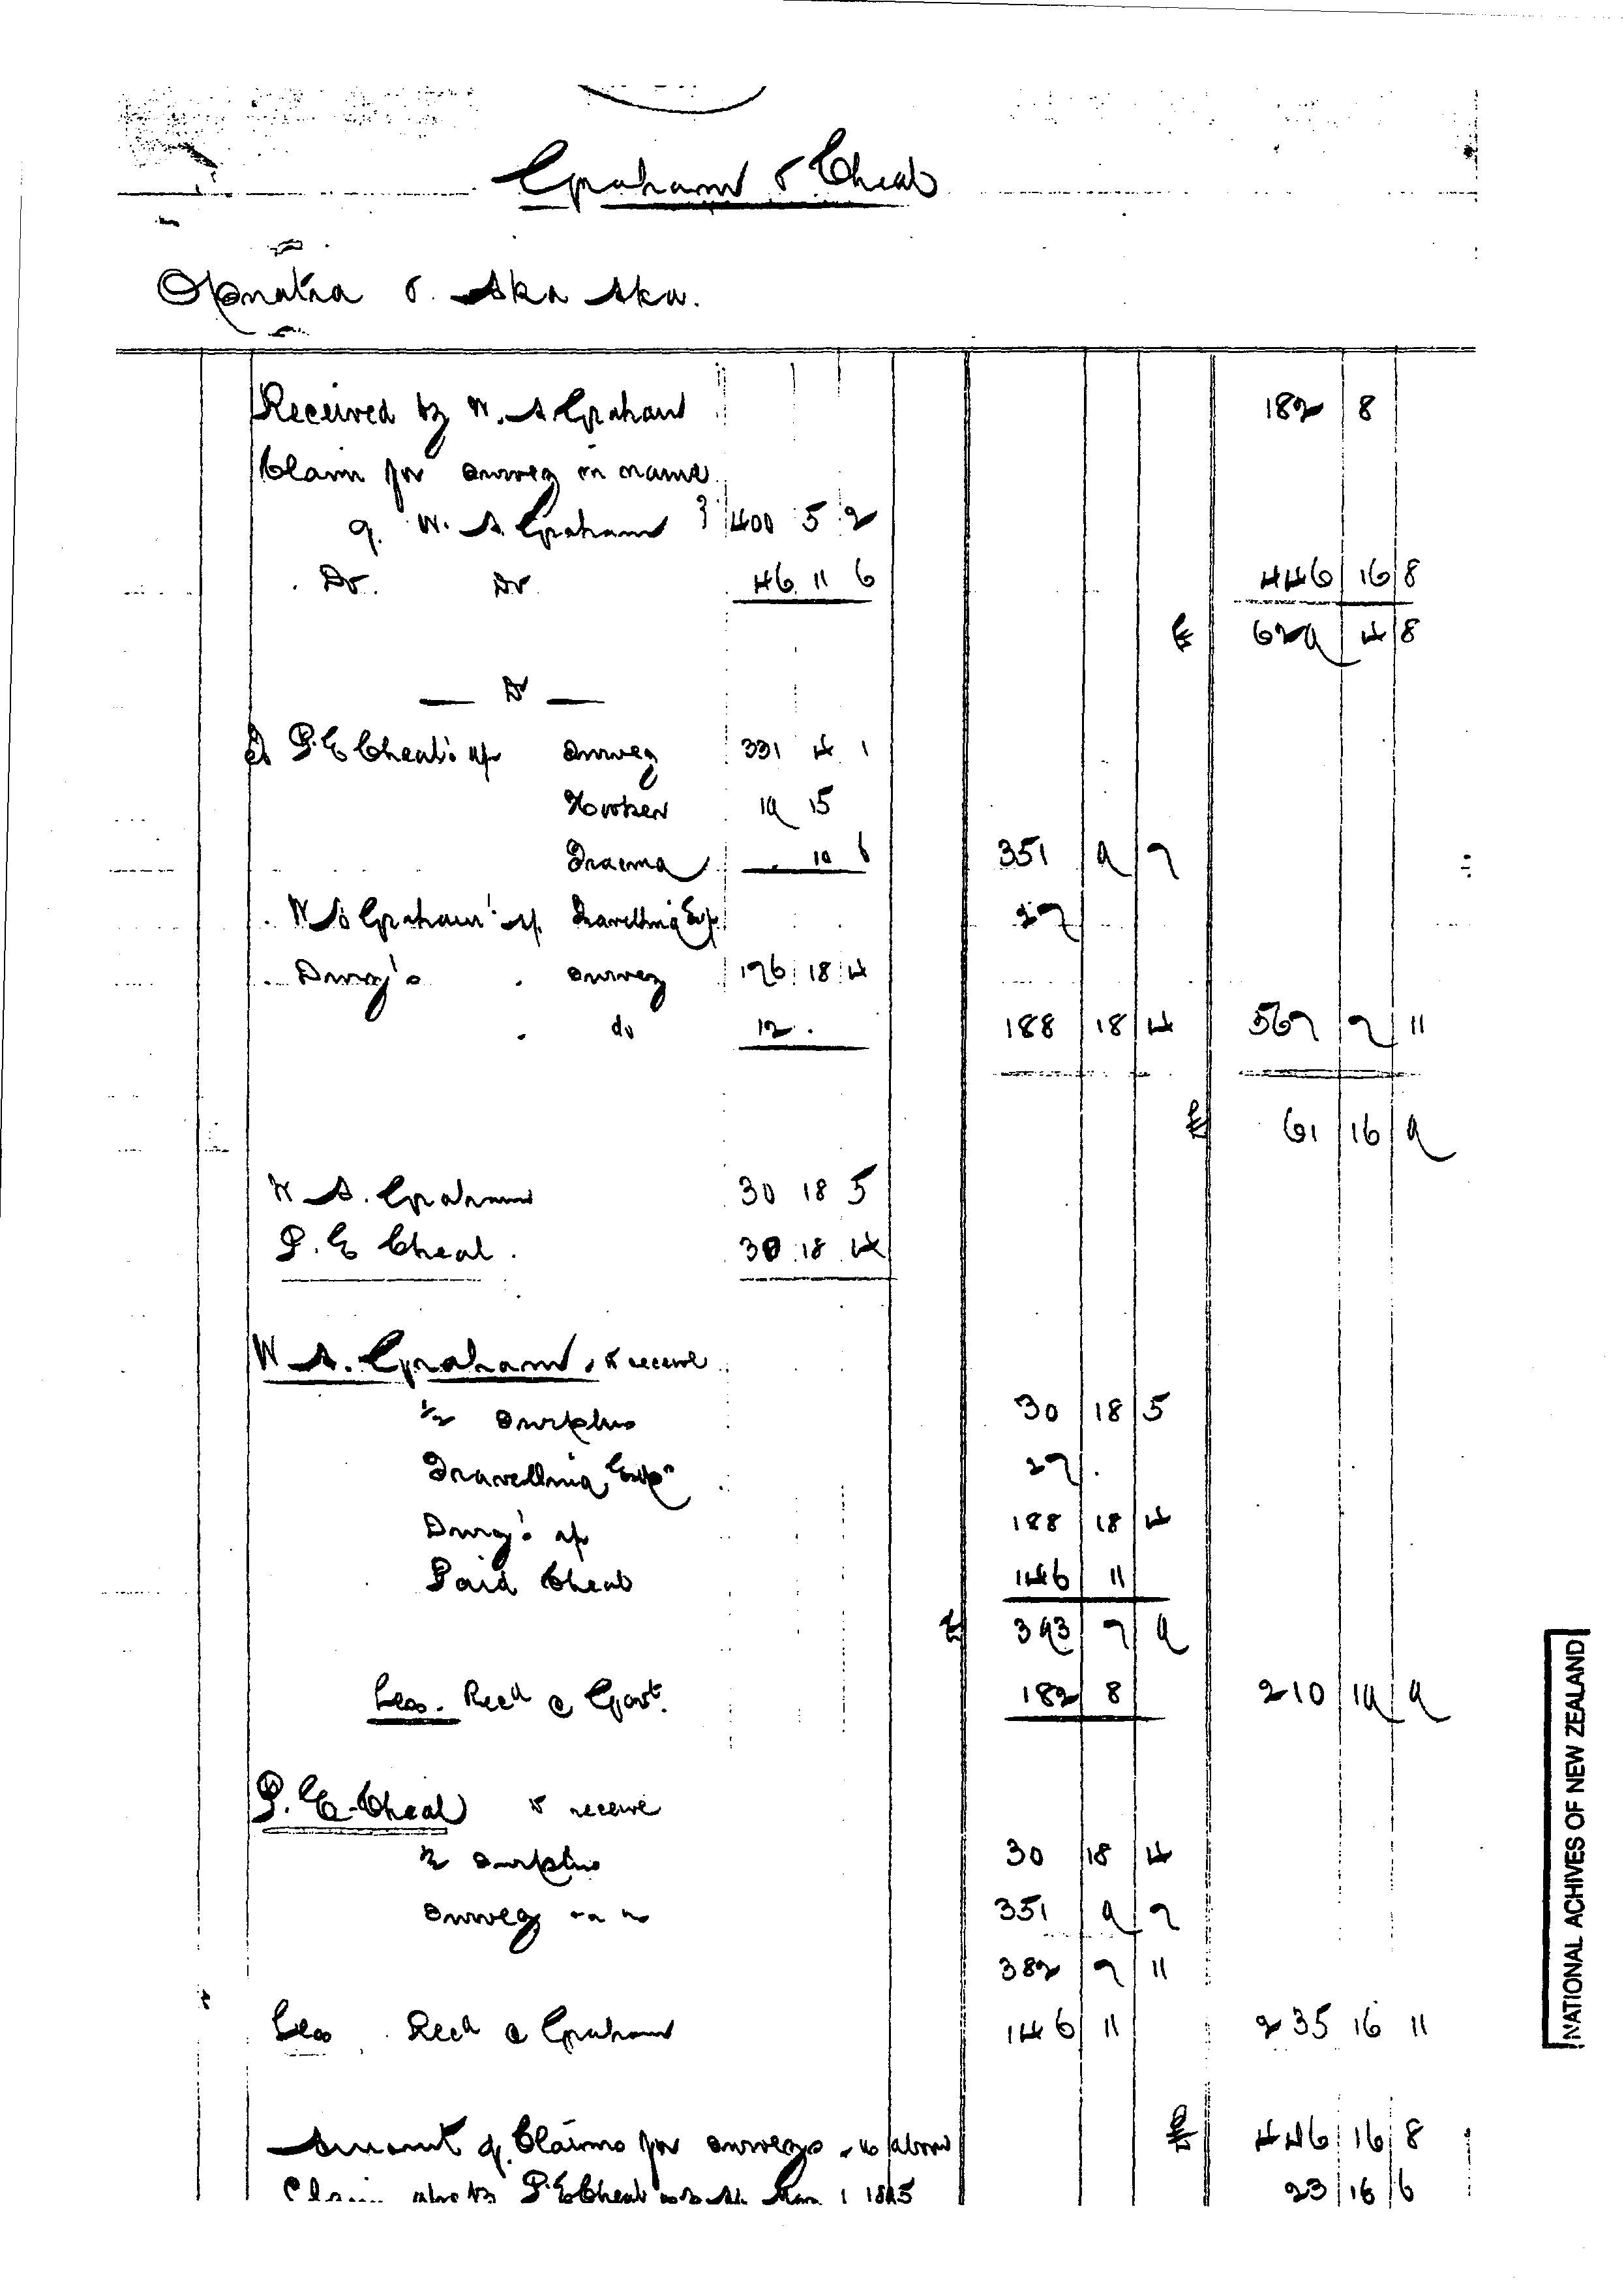 Graham & Cheal
Opuatia & Aka Aka.
Received by W. A Graham 182 8
Claim for survey in name
of W. A. Graham } 400 5 2
Do. Do 46 11 6 446 16 8
£ 629 4 8
— Dr —
To P. E Cheal's a/c Survey 331 4 1
19 15
10 6 351 9 7
W A Graham's a/c Travelling Exp. 27
Drury's survey 176 18 4
do 12. 188 18 4 567 7 11
£ 61 16 9
W A. Graham 30 18 5
P. E Cheal. 30 18 4
W A. Graham. to receive
1/2 Surplus 30 18 5
Travelling Exps 27.
Drury's a/c 188 18 4
Paid Cheal 146 11
£ 393 7 9
Less. Recd @ Govt. 182 8 210 19 9
P. E. Cheal to receive
1/2 Surplus 30 18 4
Survey 351 9 7
382 7 11
Less Recd @ Graham 146 11 235 16 11
Amount of Claims for surveys as above £ 446 16 8
Claim also by P. E Cheal 1 1895 23 16 6
NATIONAL ACHIVES OF NEW ZEALAND